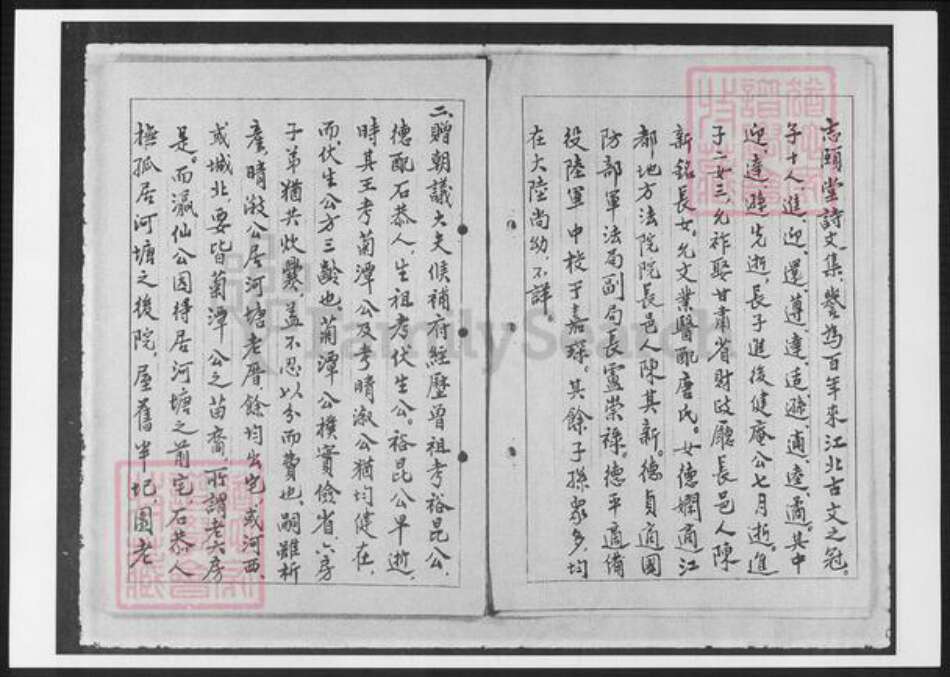 志頤堂詩文集，譽為百年來江北古文之冠。
子十人進、迎、還、遵、達、适、遜、適、逵、遹。其中
迎、達、遜先逝，長子進後健庵公七月逝。進
子一女三，允祚娶甘肅省財政廳長邑人陳
新銘長女。允文業醫配唐氏。女德嫻適江
都地方法院院長邑人陳其新。德貞適國
防部軍法局副局長盧榮祿。德平適備
役陸軍中校于嘉琛。其餘子孫眾多，均
在大陸尚幼，不詳。
二、贈朝議大夫候補府經歷曾祖考裕昆公，
德配石恭人，生祖考伏生公。裕昆公早逝，
時其王考菊潭公及考晴漵公猶均健在，
而伏生公方三齡也。菊潭公樸實儉省，六房
子弟猶共炊爨，蓋不忍以分而費也，嗣雖析
產，晴漵公居河塘老厝餘均出宅，或河西，
或城北，要皆菊潭公之苗裔，所謂老六房
是。而瀛仙公因得居河塘之前宅，石恭人
撫孤居河塘之後院，屋舊半圮，園老